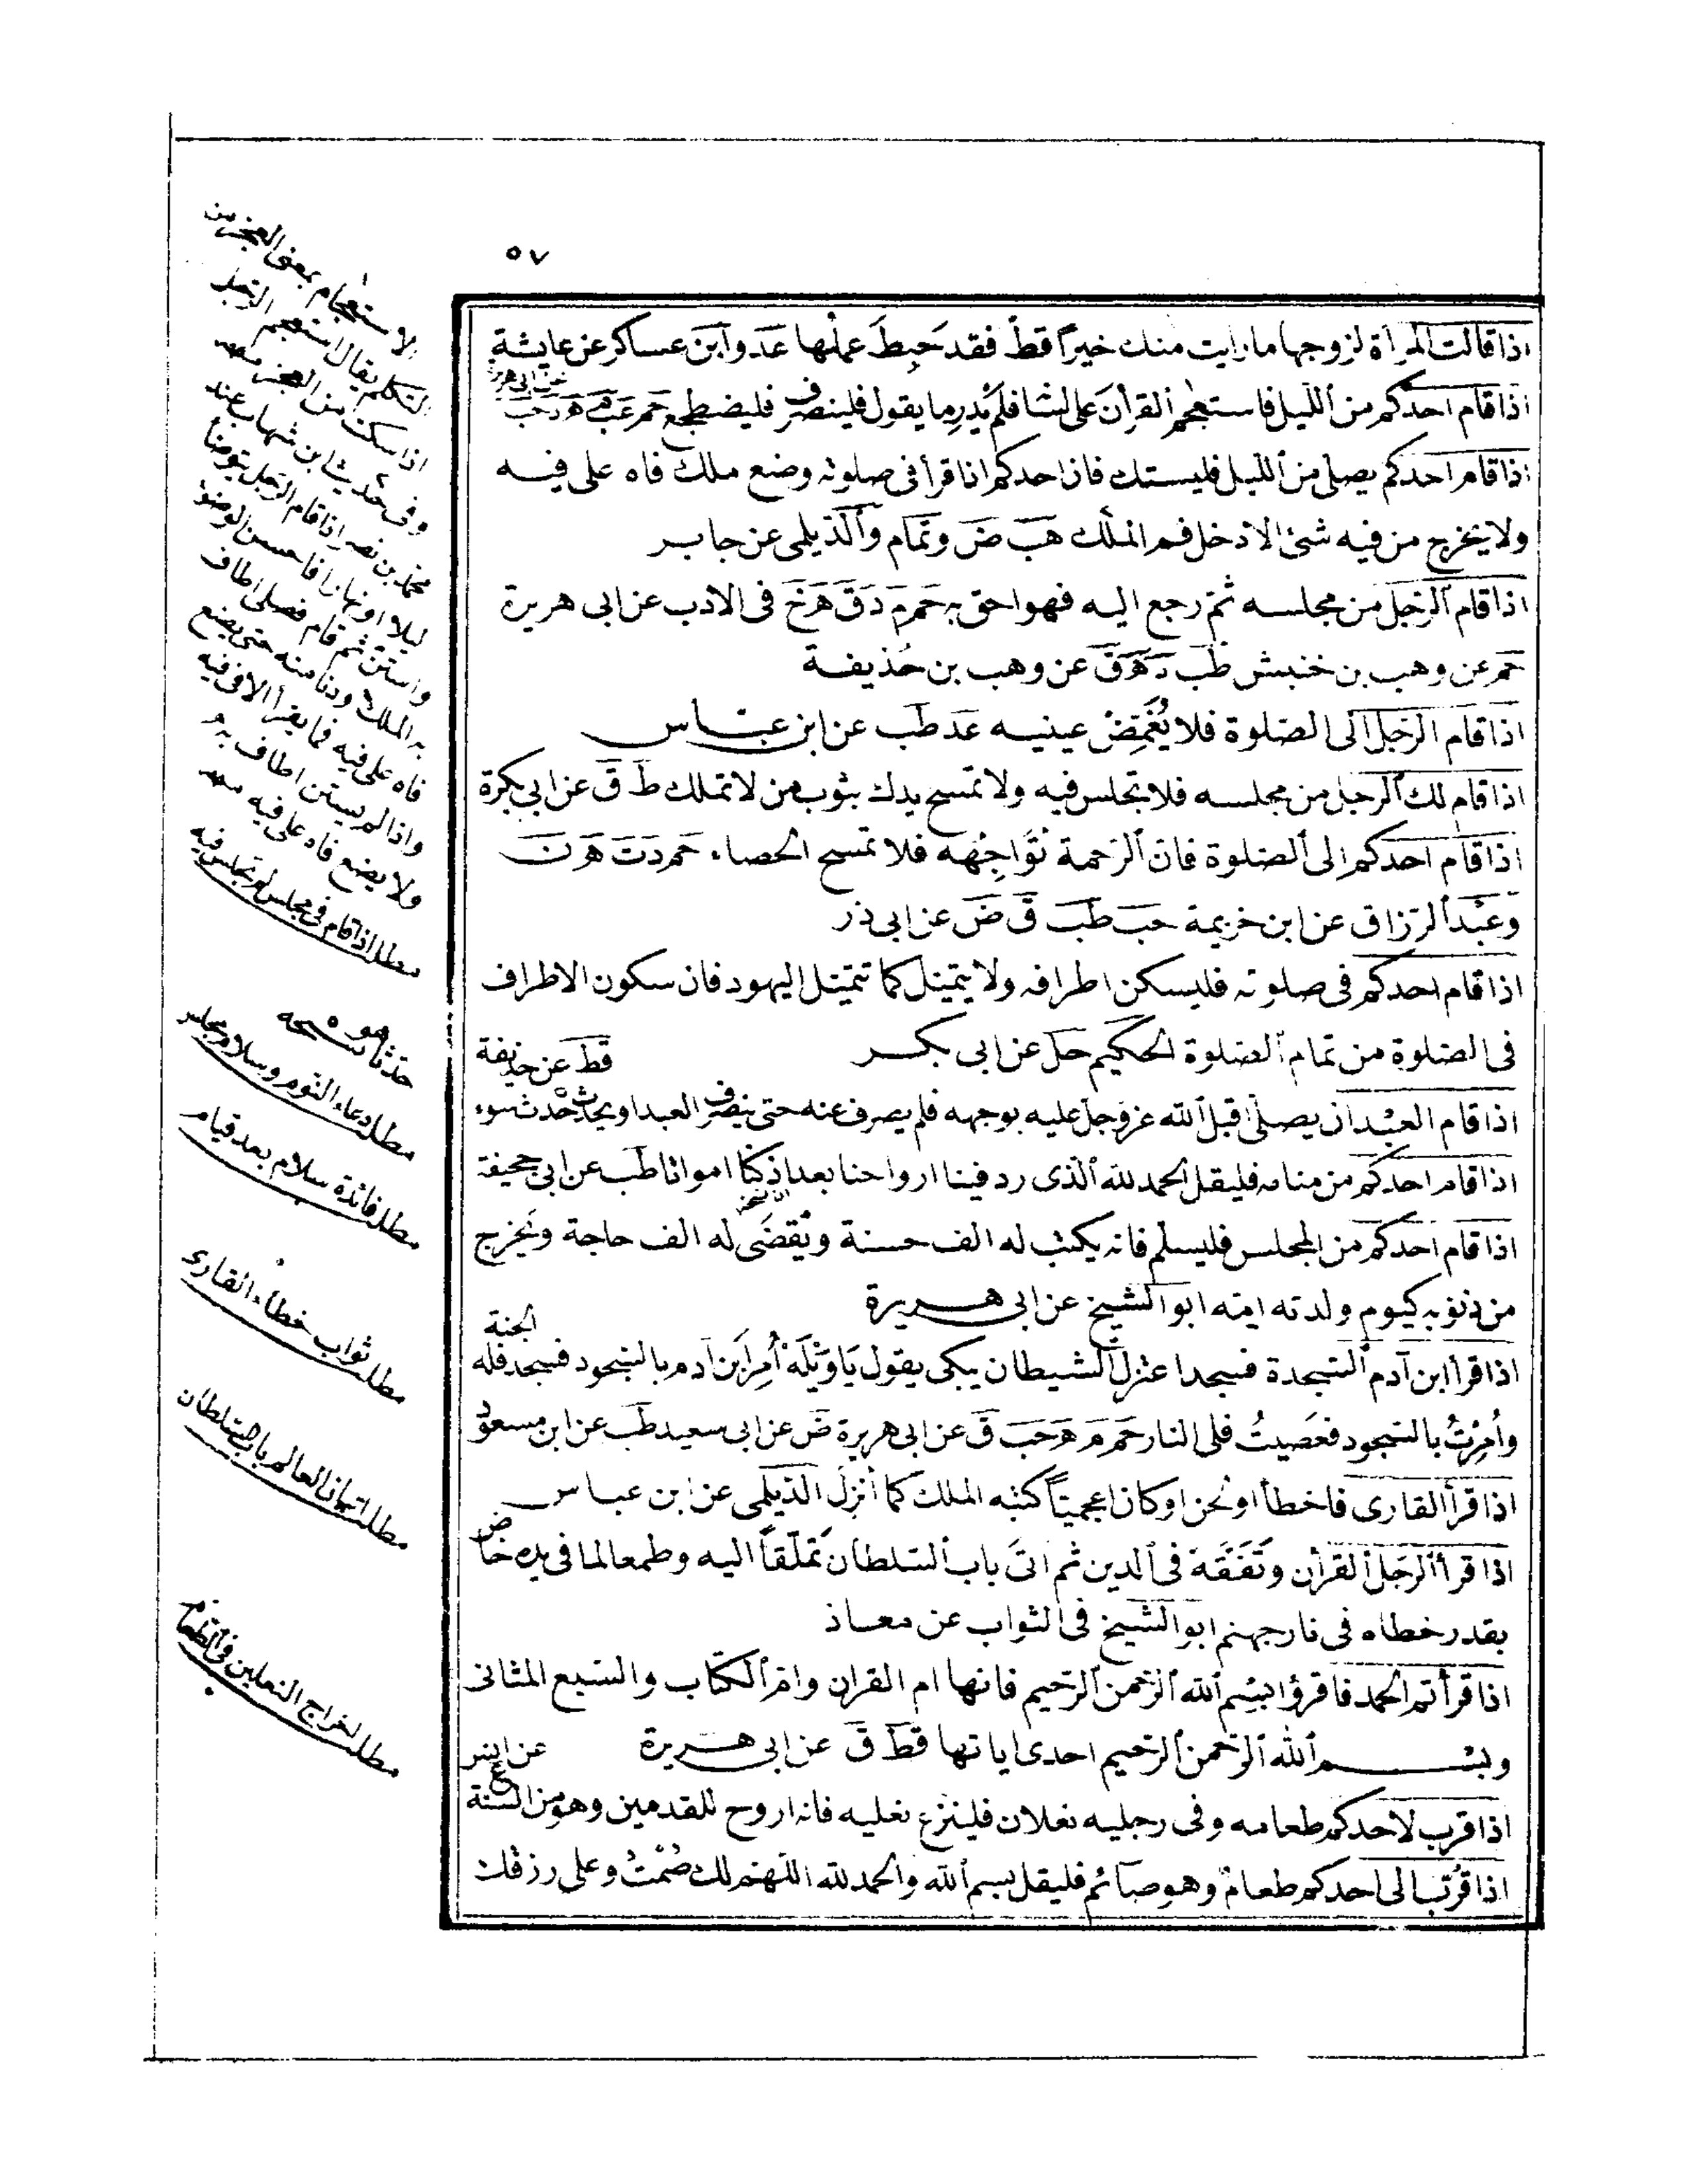 ٥٧
اذا قالت المرأة لزوجها ما رايت منك خيراً قطّ فقد حَبِطَ عملُها عَد وابن عساكر عن عايشة
عن ابى هريرة
اذا قام احدكم من الليل فاستعجم القرأن على لسانه فلم يَدرِ ما يقول فلينصرف فليضطجع حم عب م د هـ حب
اذا قام احدكم يصلى من الليل فليستك فان احدكم اذا قرأ فى صلوته وضع ملك فاه على فيه
ولا يخرج من فيه شئ الا دخل فم الملك هَبَ ضَ وتمام والديلمى عن جابر
اذا قام الرجل من مجلسه ثم رجع اليه فهو احق به حَم م دَ قَ هَ خَ فى الادب عن ابى هريرة
حم عن وهب بن خنبش طَب دَ هَ قَ عن وهب بن حُذيفة
اذا قام الرجل الى الصلوة فلا يُغَمِّضْ عينيه عَد طَب عن ابن عبّاس
اذا قام لك الرجل من مجلسه فلا تجلس فيه ولا تمسح يدك بثوب من لا تملك طَ قَ عن ابى بكرة
اذا قام احدكم الى الصلوة فان الرحمة تُوَاجِهُه فلا تمسح الحصاء حَم دَ تَ هَ نَ
وعَبْد الرزاق عن ابن خزيمة حَب طَب قَ ضَ عن ابى ذر
اذا قام احدكم فى صلوته فليسكن اطرافه ولا يتميّل كما تتميّل اليهود فان سكون الاطراف
فى الصلوة من تمام الصلوة الحكيم حَل عن ابى بكر
قط عن حذيفة
اذا قام العبْد ان يصلى اقبل الله عز وجل عليه بوجهه فلم يصرف عنه حتى ينصرف العبد او يحدث حَدث سوء
اذا قام احدكم من منامه فليقل الحمد لله الذى رد فينا ارواحنا بعد اذ كنا امواتا طَب عن ابى جحيفة
اذا قام احدكم من المجلس فليسلم فانه يكتب له الف حسنة وتُقضَى له الف حاجة ويخرج
من ذنوبه كيوم ولدته امّه ابو الشيخ عن ابى هريرة
الجنة
اذا قرأ ابن آدم السجدة فسجد اعتزل الشيطان يبكى يقول يَا وَيْلَهْ أُمِرَ ابن آدم بالسجود فسجد فله
وأُمِرْتُ بالسجود فعَصيتُ فلى النار حَم م هَ حَب قَ عن ابى هريرة ضَ عن ابى سعيد طَب عن ابن مسعود
اذا قرأ القارى فاخطأ او لحن او كان اعجميّاً كتبه الملك كما أُنزِلَ الديلمى عن ابن عباس
اذا قرأ الرجل القرأن وتَفَقَّهَ فى الدين ثم اتَى باب السلطان تملّقاً اليه وطمعا لما فى يده خاض
بقدر خطاه فى نار جهنم ابو الشيخ فى الثواب عن معاذ
اذا قرأتم الحمد فاقرؤا ببسم الله الرحمن الرحيم فانها ام القران وام الكتاب والسبع المثانى
وبسم الله الرحمن الرحيم احدى اياتها قطَ قَ عن ابى هريرة
عن انس
اذا قرب لاحدكم طعامه وفى رجليه نعلان فلينزع نعليه فانه اروح للقدمين وهو من السنة ع
اذا قُرّب الى احدكم طعامٌ وهو صائم فليقل بسم الله والحمد لله اللهم لك صُمْتُ وعلى رزقك
الاستعجام بمعنى العجز من
التكلم يقال استعجم الرجل
اذا سكت من العجز
وفى حديث ابن شهاب عند
محمد بن نصر اذا قام الرجل يتوضأ
ليلا او نهارا فاحسن الوضوء
واستنّ ثم قام فصلى اطاف
به الملك ودنا منه حتى يضع
فاه على فيه فما يقرأ الا فى فيه
واذا لم يستن اطاف به
ولا يضع فاه على فيه
مطلب اذا قام فى مجلس لم تجلس فيه
حدثنا نسخه
مطلب دعاء النوم وسلام مجلس
مطلب فائدة سلام بعد قيام
مطلب ثواب خطاء القارى
مطلب اتيان العالم باب السلطان
مطلب اخراج النعلين فى الطعام